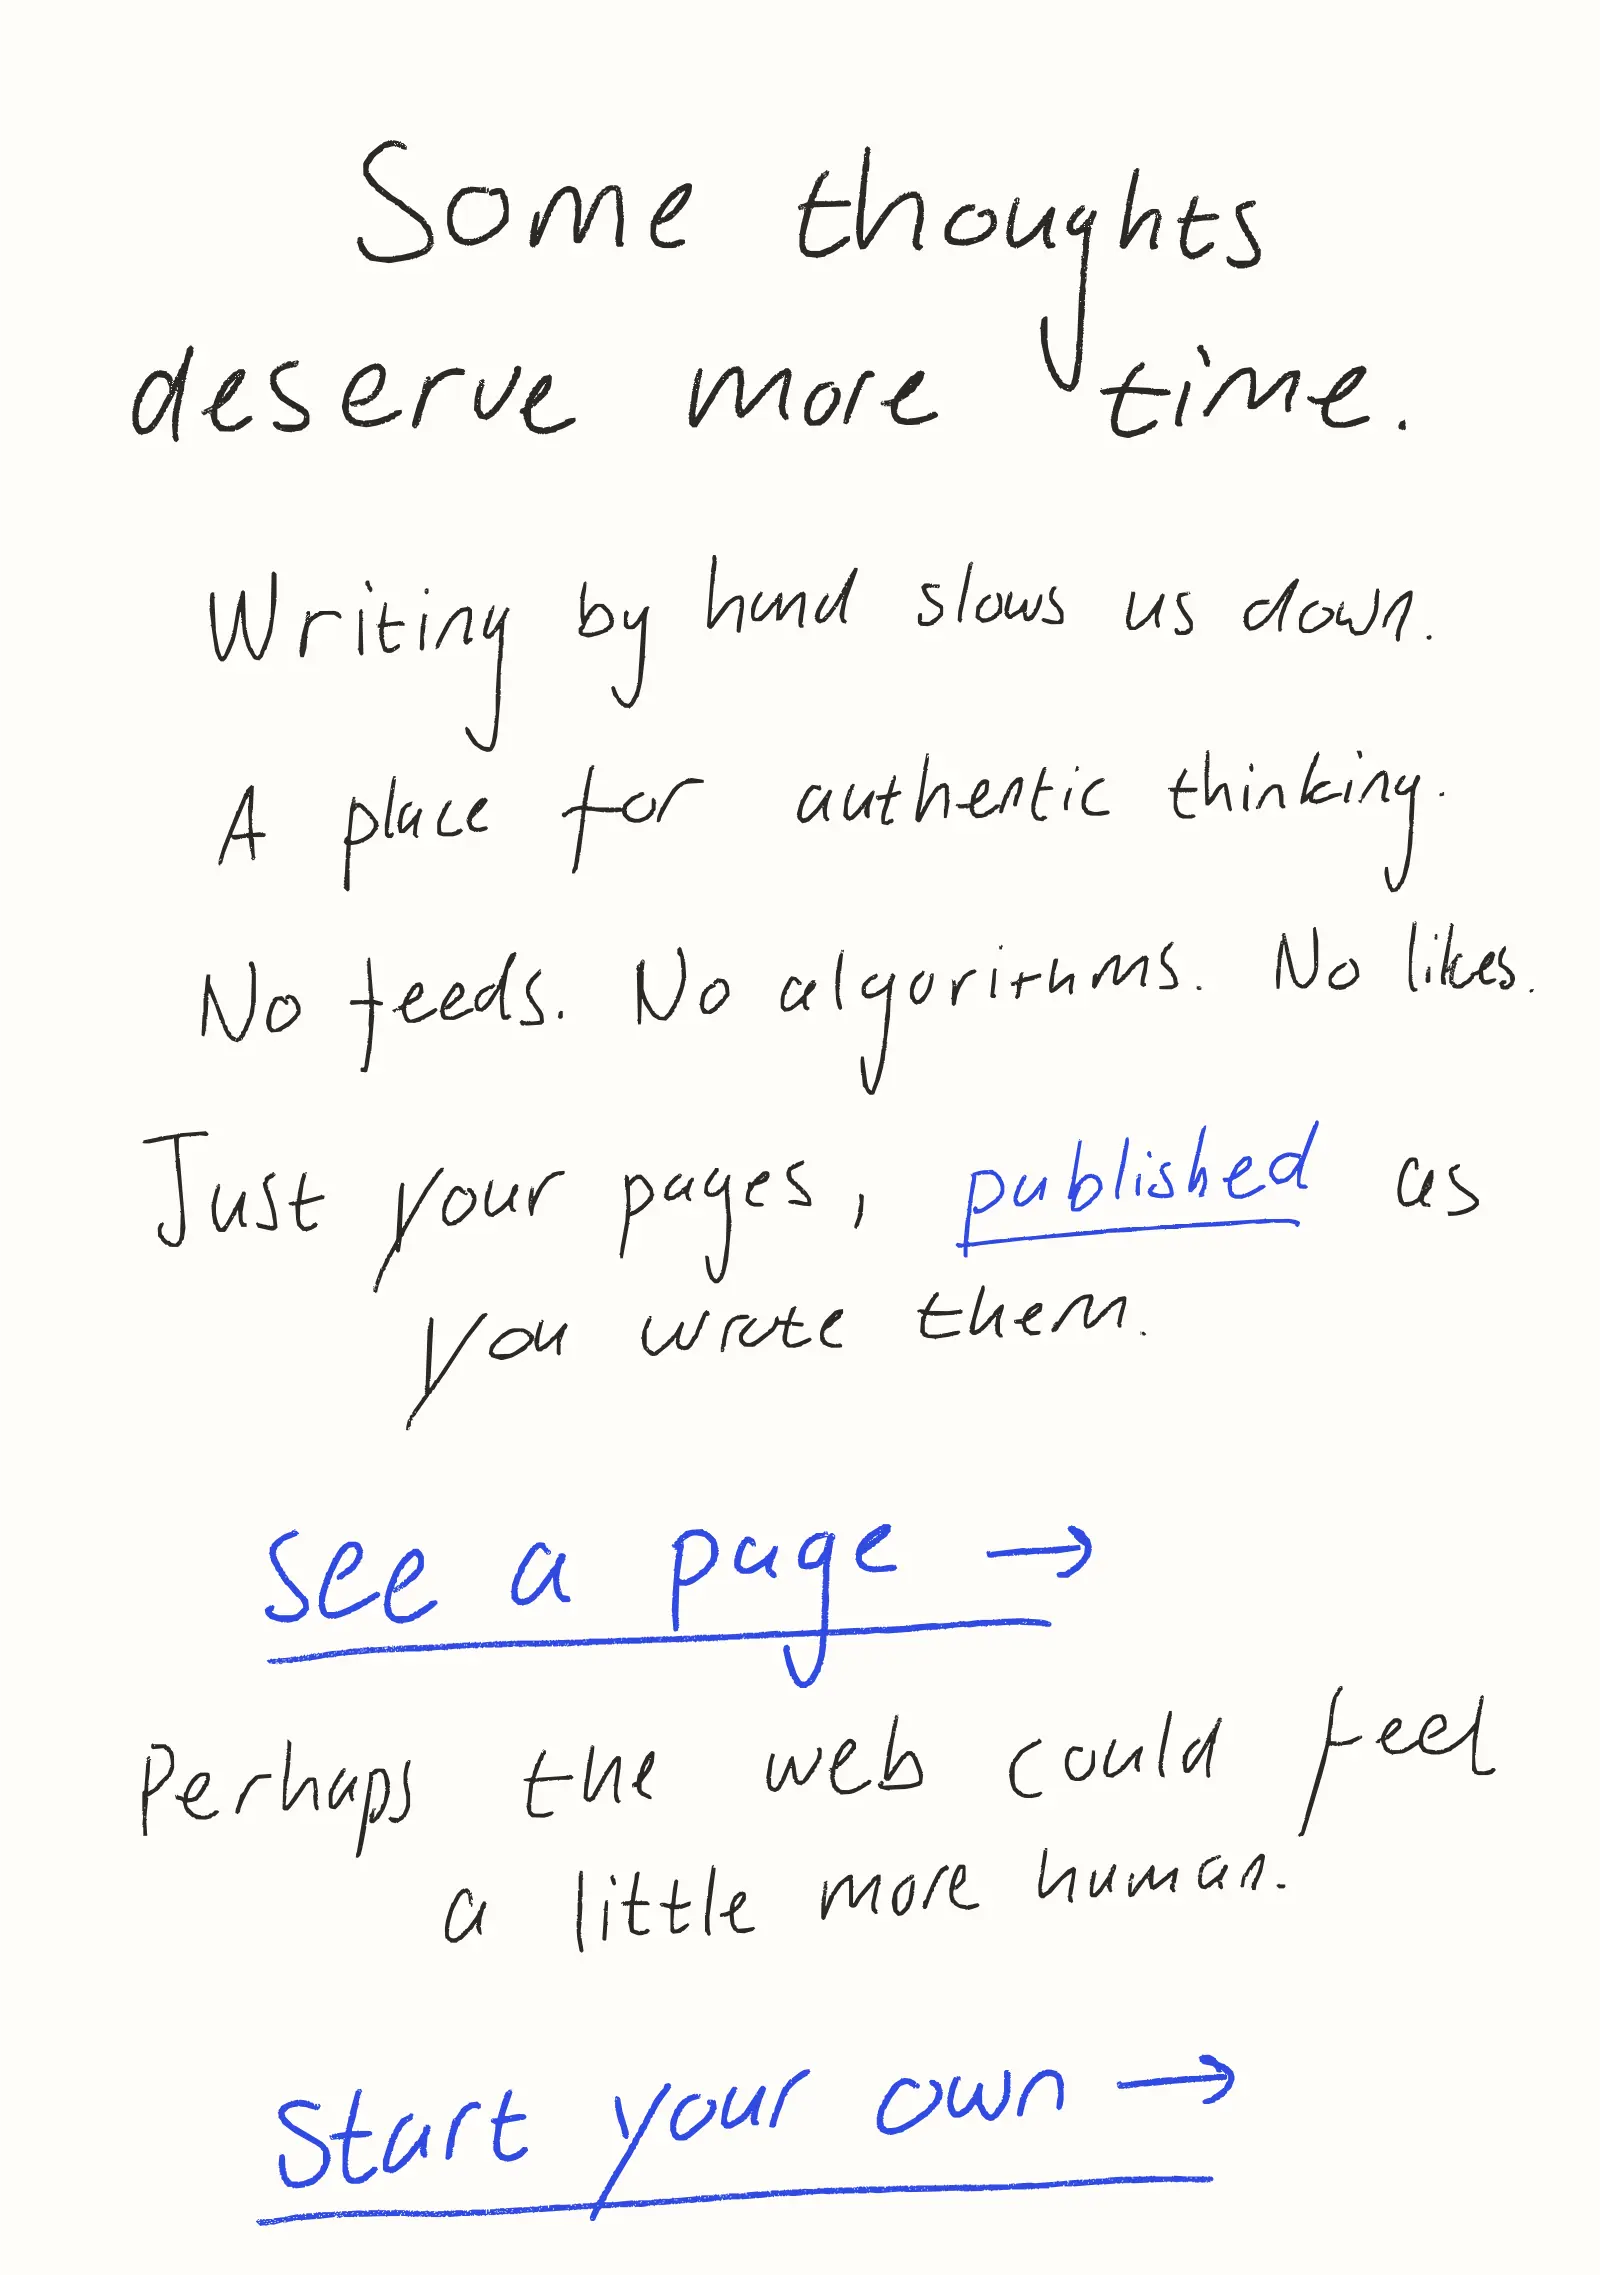 Some thoughts
deserve more time.
Writing by hand slows us down.
A place for authentic thinking.
No feeds. No algorithms. No likes.
Just your pages, published as
you wrote them.
See a page →
Perhaps the web could feel
a little more human.
Start your own →